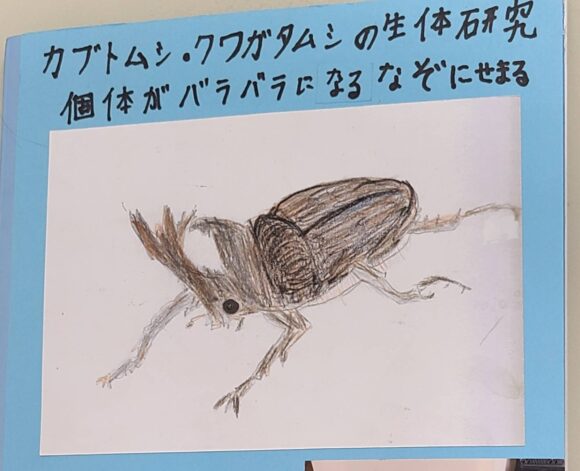 カブトムシ・クワガタムシの生体研究
個体がバラバラになるなぞにせまる